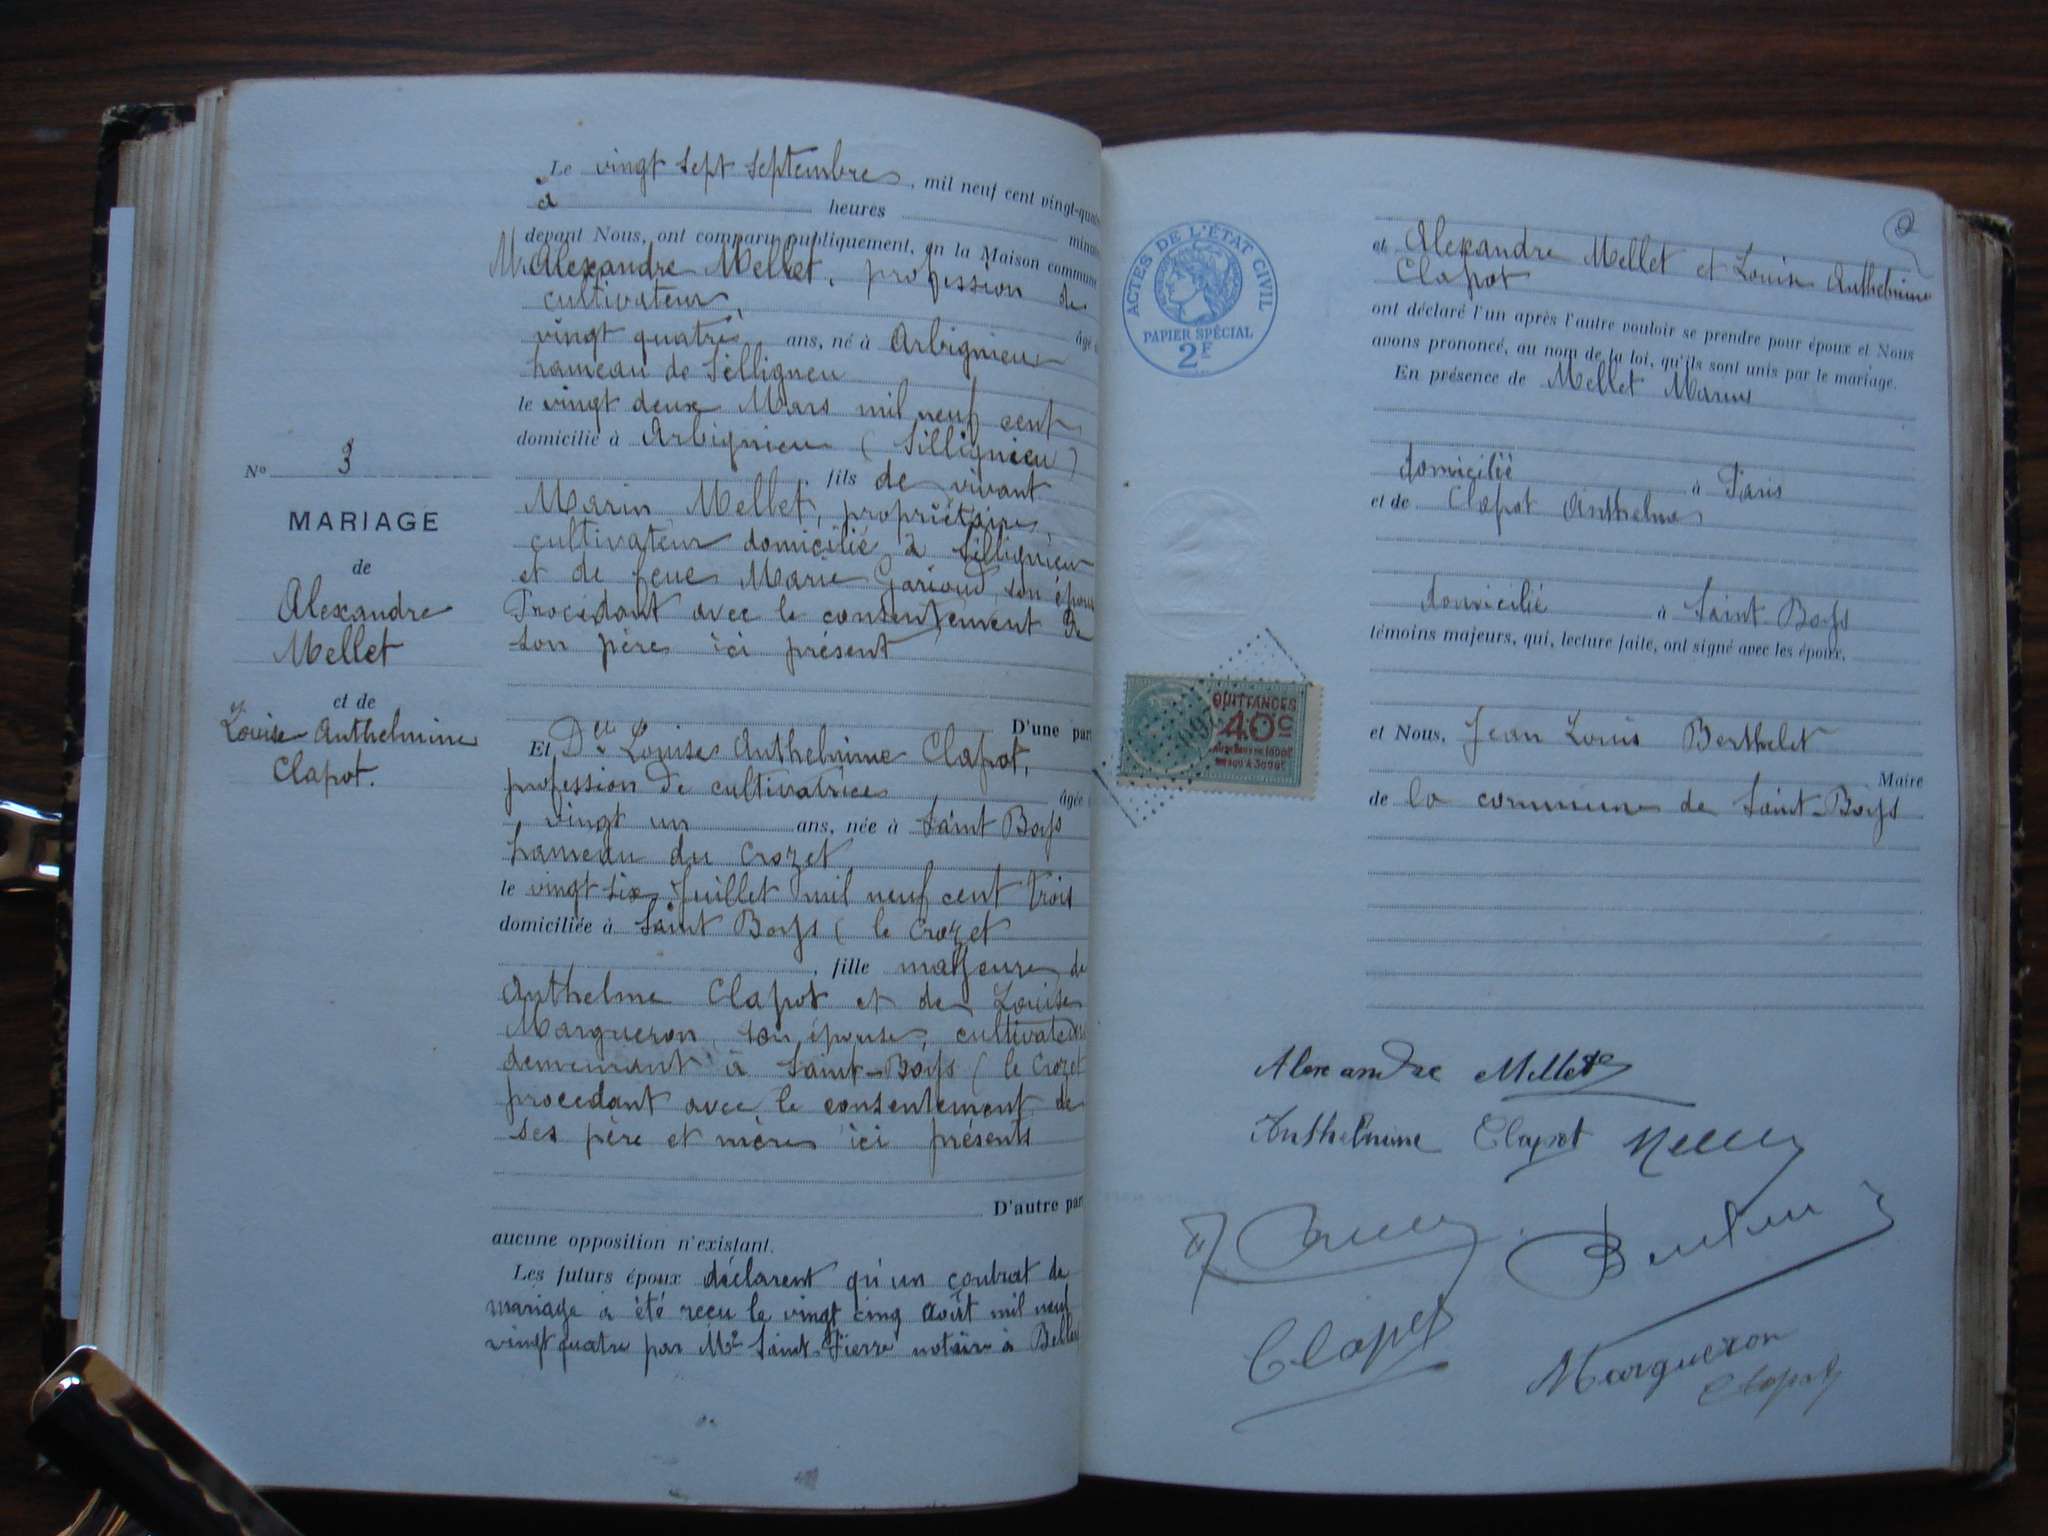 Le vingt sept septembre, mil neuf cent vingt-quatr
à heures minut
devant Nous, ont comparu publiquement, en la Maison commune
M. Alexandre Mellet, profession de
cultivateur, âgé
vingt quatre ans, né à Arbignieu
hameau de Sillignieu
le vingt deux Mars mil neuf cent
domicilié à Arbignieu (Sillignieu)
fils de vivant
Marin Mellet, propriétaire
cultivateur domicilié à Sillignieu
et de feue Marie Garioud, son épouse
Procédant avec le consentement de
son père ici présent
D'une par
Et Delle Louise Anthelmine Clapot,
profession de cultivatrice âgée
vingt un ans, née à Saint Boys
hameau du Crozet
le vingt six Juillet mil neuf cent trois
domiciliée à Saint Boys ( le Crozet
, fille majeure de
Anthelme Clapot et de Louise
Margueron, son épouse, cultivateurs
demeurant à Saint-Boys ( le Crozet
procédant avec le consentement de
ses père et mère ici présents
D'autre par
aucune opposition n'existant.
Les futurs époux déclarent qu'un contrat de
mariage a été reçu le vingt cinq août mil neuf
vingt quatre par Me Saint-Pierre notaire à Belley
No 3
MARIAGE
de
Alexandre
Mellet
et de
Louise Anthelmine
Clapot.
ACTES DE L'ÉTAT CIVIL
PAPIER SPÉCIAL
2F
QUITTANCES
40c
et Alexandre Mellet et Louise Anthelmine
Clapot
ont déclaré l'un après l'autre vouloir se prendre pour époux et Nous
avons prononcé, au nom de la loi, qu'ils sont unis par le mariage.
En présence de Mellet Marius
domicilié à Paris
et de Clapot Anthelme
domicilié à Saint Boys
témoins majeurs, qui, lecture faite, ont signé avec les époux,
et Nous, Jean Louis Berthelet
Maire
de la commune de Saint-Boys
Alexandre Mellet
Anthelmine Clapot Mellet
Clapot
Margueron
Clapot